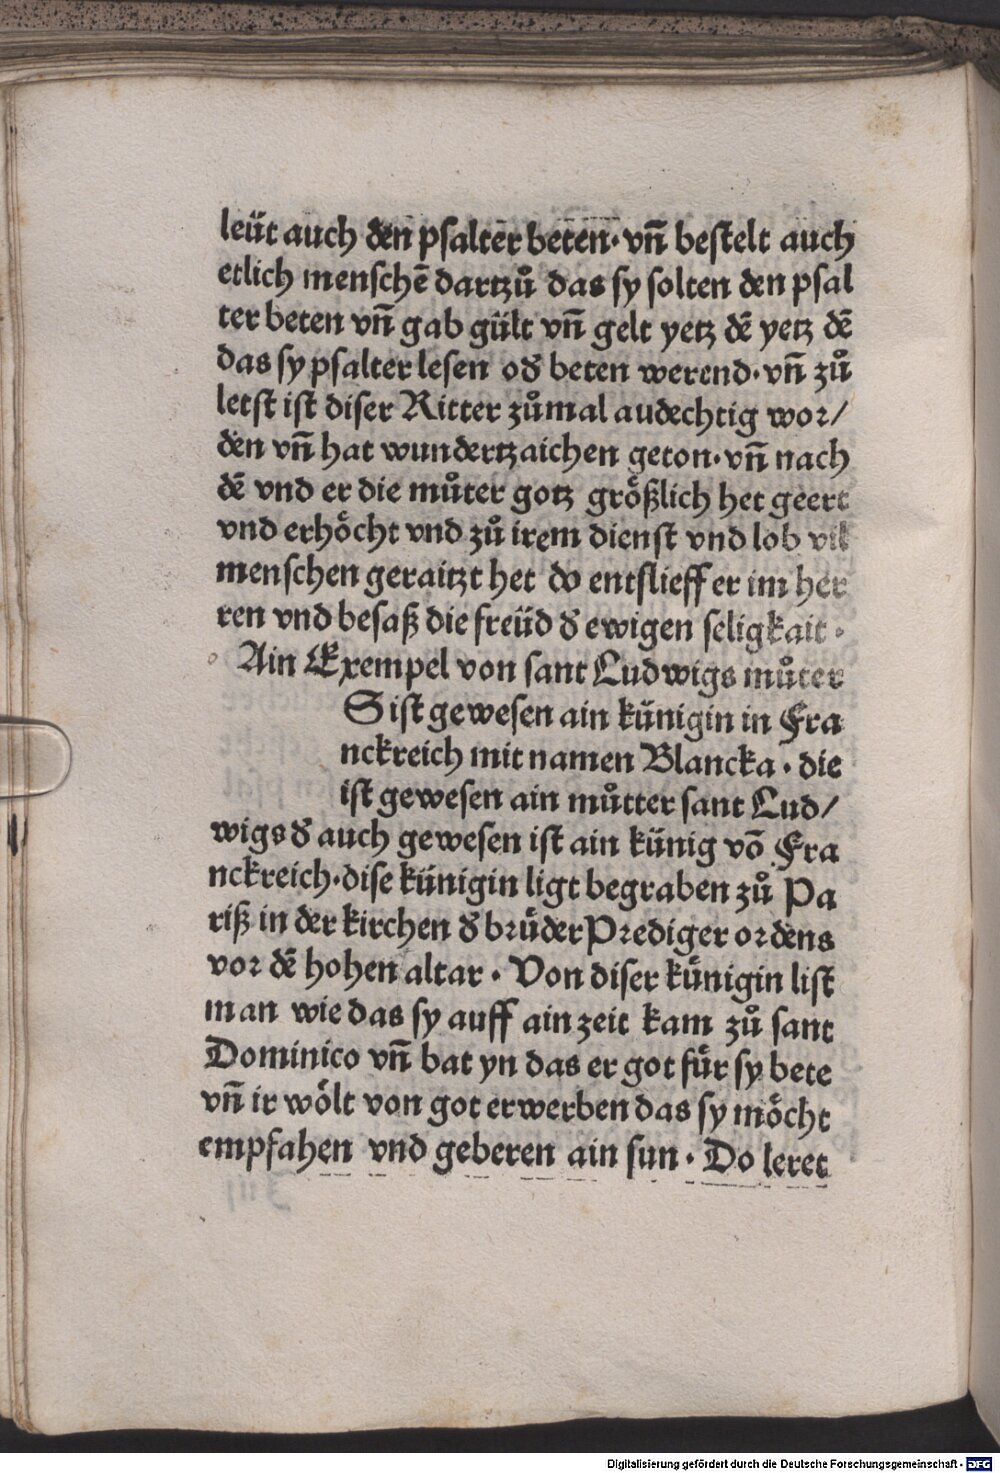 leüt auch den psalter beten· vñ bestelt auch
etlich menschē dartzů das sy solten den psal
ter beten vñ gab gült vñ gelt yetz dē yetz dē
das sy psalter lesen ođ beten werend· vñ zů
letst ist diser Ritter zůmal audechtig wor/
den vñ hat wundertzaichen geton· vñ nach
dē vnd er die můter gotz größlich het geert
vnd erhöcht vnd zů irem dienst vnd lob vil
menschen geraitzt het do entslieff er im her
ren vnd besaß die freüd đ ewigen seligkait·
Ain Exempel von sant Ludwigs můter
S ist gewesen ain künigin in Fra
nckreich mit namen Blancka· die
ist gewesen ain můtter sant Lud/
wigs đ auch gewesen ist ain künig vō Fra
nckreich· dise künigin ligt begraben zů Pa
riß in der kirchen đ brüder Prediger ordens
vor dē hohen altar· Von diser künigin list
man wie das sy auff ain zeit kam zů sant
Dominico vñ bat yn das er got für sy bete
vñ ir wölt von got erwerben das sy möcht
empfahen vnd geberen ain sun· Do leret
Digitalisierung gefördert durch die Deutsche Forschungsgemeinschaft - DFG